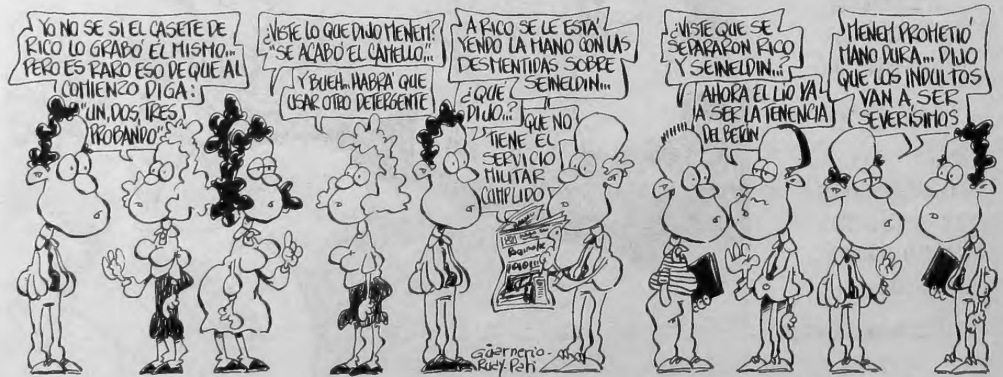 YO NO SE SI EL CASETE DE
RICO LO GRABÓ ÉL MISMO...
PERO ES RARO ESO DE QUE AL
COMIENZO DIGA:
"UN, DOS, TRES,
PROBANDO"
¿VISTE LO QUE DIJO MENEM?
"SE ACABÓ EL CAMELLO"...
Y BUEH... HABRÁ QUE
USAR OTRO DETERGENTE
A RICO SE LE ESTÁ
YENDO LA MANO CON LAS
DESMENTIDAS SOBRE
SEINELDIN...
¿QUÉ
DIJO..?
QUE NO
TIENE EL
SERVICIO
MILITAR
CUMPLIDO
¿VISTE QUE SE
SEPARARON RICO
Y SEINELDIN..?
AHORA EL LÍO VA
A SER LA TENENCIA
DEL BETÚN
MENEM PROMETIÓ
MANO DURA... DIJO
QUE LOS INDULTOS
VAN A SER
SEVERÍSIMOS
Guarnerio-
Rudy-Pati